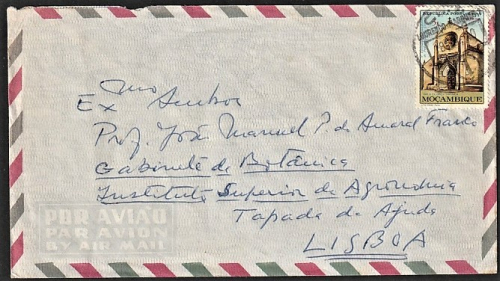 REPUBLICA PORTUGUESA
MOÇAMBIQUE
Ex mo Senhor
Prof. José Manuel P. de Amaral Franco
Gabinete de Botânica
Instituto Superior de Agronomia
Tapada da Ajuda
LISBOA
POR AVIÃO
PAR AVION
BY AIR MAIL